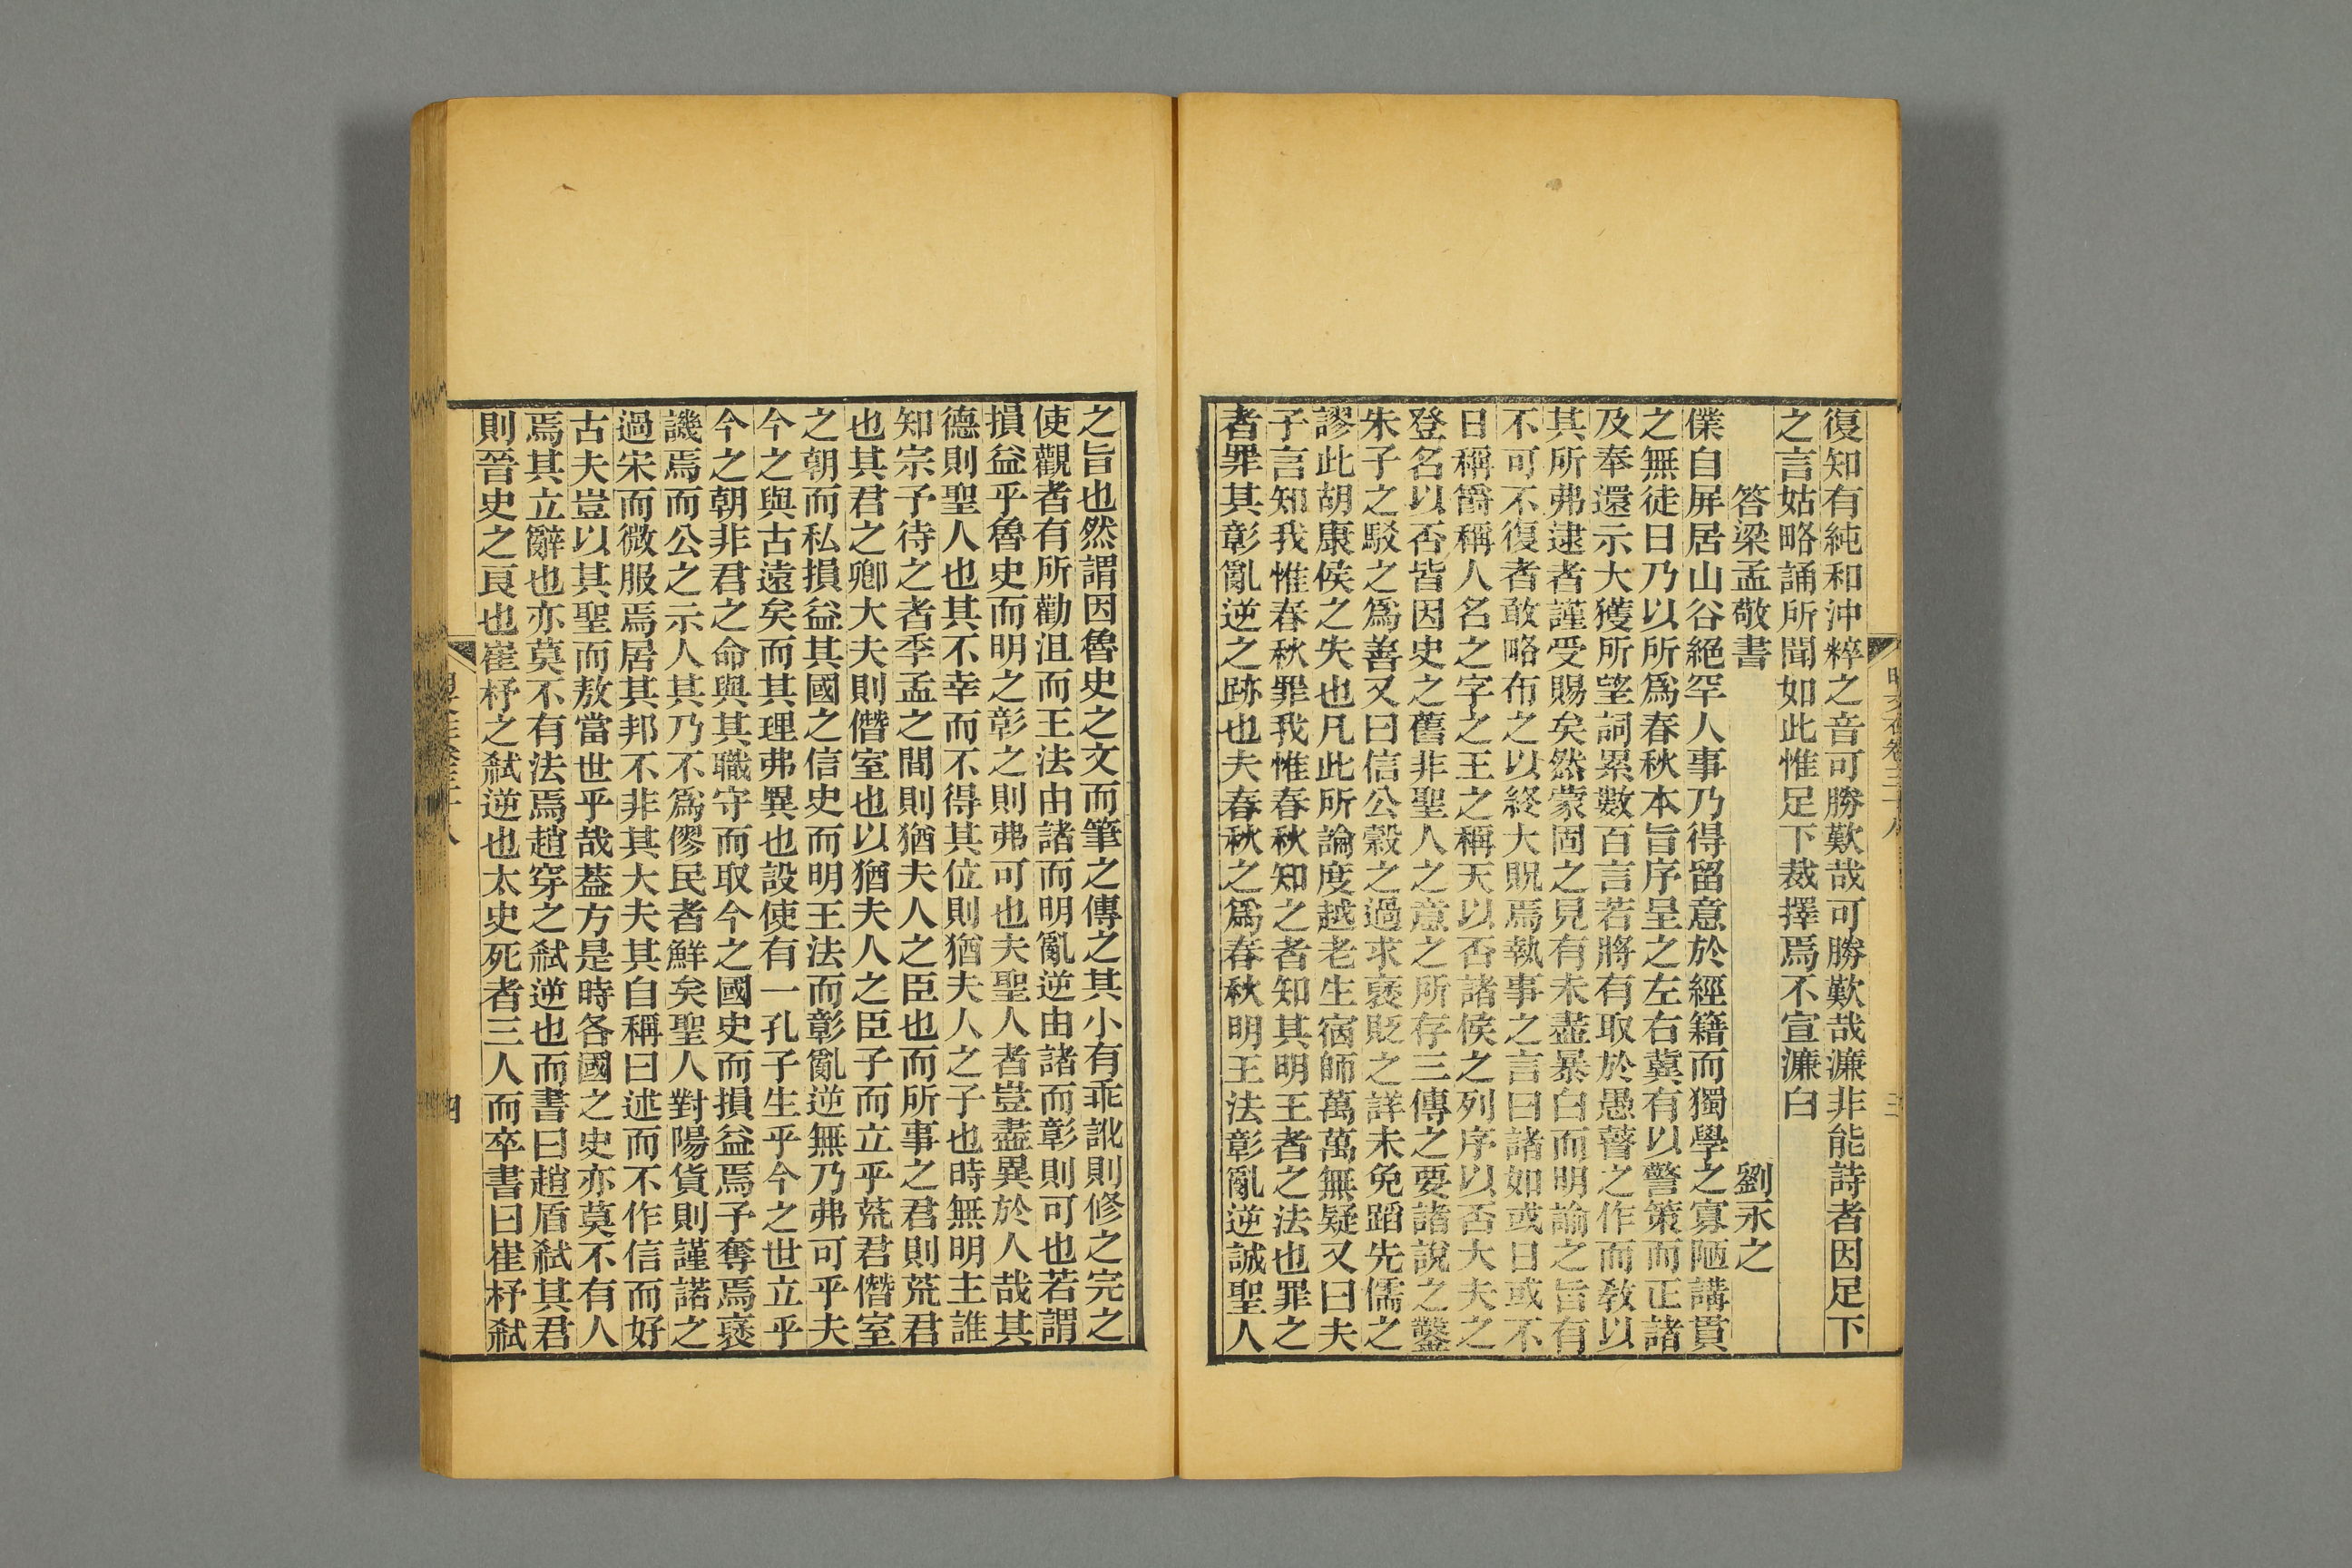 復知有純和沖粹之音可勝歎哉可勝歎哉濂非能詩者因足下
之言姑略誦所聞如此惟足下裁擇焉不宣濂白
答梁孟敬書
劉永之
僕自屏居山谷絕罕人事乃得留意於經籍而獨學之寡陋講貫
之無徒日乃以所爲春秋本旨序呈之左右冀有以警策而正諸
及奉還示大獲所望詞累數百言若將有取於愚瞽之作而敎以
其所弗逮者謹受賜矣然蒙固之見有未盡暴白而明諭之旨有
不可不復者敢略布之以終大貺焉執事之言曰諸如或日或不
日稱爵稱人名之字之王之稱天以否諸侯之列序以否大夫之
登名以否皆因史之舊非聖人之意之所存三傳之要諸說之鑿
朱子之駁之爲善又曰信公穀之過求褒貶之詳未免蹈先儒之
謬此胡康侯之失也凡此所論度越老生宿師萬萬無疑又曰夫
子言知我惟春秋罪我惟春秋知之者知其明王者之法也罪之
者罪其彰亂逆之跡也夫春秋之爲春秋明王法彰亂逆誠聖人
之旨也然謂因魯史之文而筆之傳之其小有乖訛則修之完之
使觀者有所勸沮而王法由諸而明亂逆由諸而彰則可也若謂
損益乎魯史而明之彰之則弗可也夫聖人者豈盡異於人哉其
德則聖人也其不幸而不得其位則猶夫人之子也時無明主誰
知宗予待之者季孟之間則猶夫人之臣也而所事之君則荒君
也其君之卿大夫則僭室也以猶夫人之臣子而立乎荒君僭室
之朝而私損益其國之信史而明王法而彰亂逆無乃弗可乎夫
今之與古遠矣而其理弗異也設使有一孔子生乎今之世立乎
今之朝非君之命與其職守而取今之國史而損益焉予奪焉褒
譏焉而公之示人其乃不爲僇民者鮮矣聖人對陽貨則謹諾之
過宋而微服焉居其邦不非其大夫其自稱曰述而不作信而好
古夫豈以其聖而敖當世乎哉蓋方是時各國之史亦莫不有人
焉其立辭也亦莫不有法焉趙穿之弑逆也而書曰趙盾弑其君
則晉史之良也崔杼之弑逆也太史死者三人而卒書曰崔杼弑